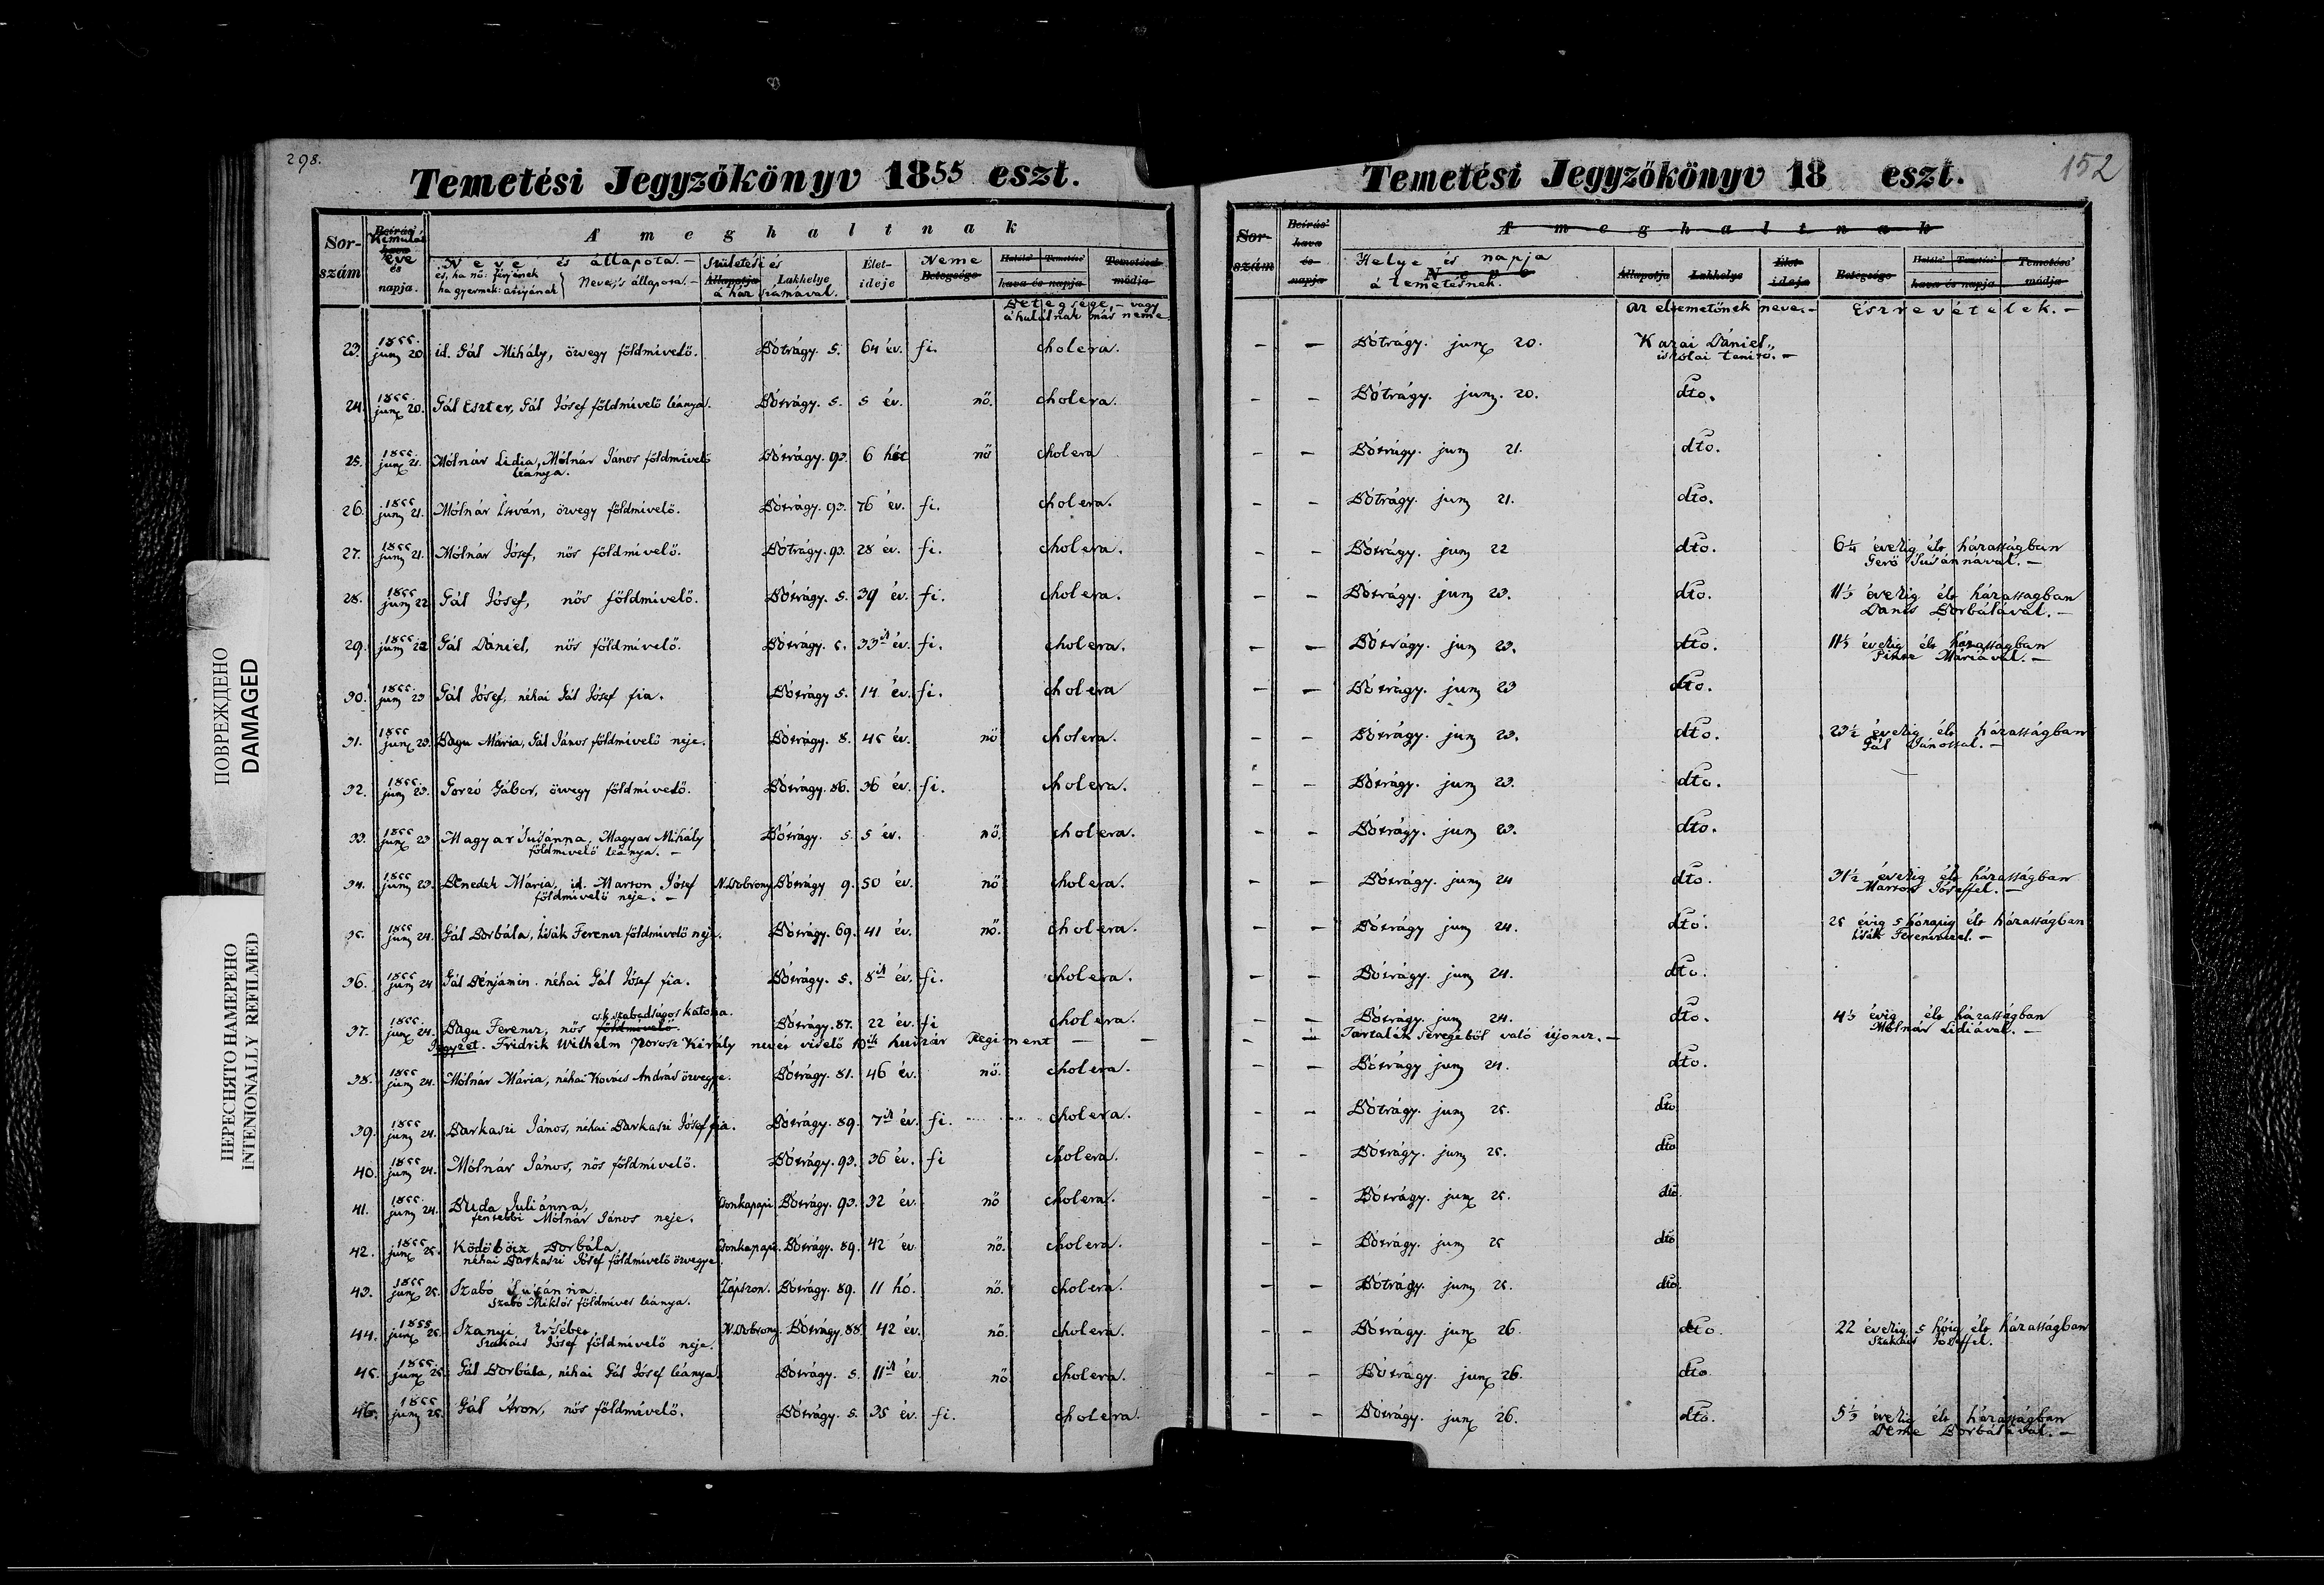 298.
Temetési Jegyzőkönyv 1855 eszt.
Sor-
szám
Beírás'
Kimulás
hava
éve
és
napja.
A' meghaltnak
Neve és állapota. –
és, ha nő: férjének
ha gyermek: atyjának } Neve, 's állapota. –
Születési és
Állapotja Lakhelye
a' ház számával.
Élet-
ideje
Neme
Betegsége
Halálo' Temetése'
hava és napja
Temetése'
módja
Betegsége, – vagy
a' halálnak más neme.
23. 1855. jun 20. id. Gál Mihály, özvegy földmívelő. Bótrágy. 5. 64 év. fi. cholera.
24. 1855. jun 20. Gál Eszter, Gál Jósef földmívelő leánya. Bótrágy. 5. 5 év. nő. cholera.
25. 1855 jun 21. Mólnár Lidia, Mólnár János földmívelő Bótrágy. 93. 6 hét nő cholera
leánya.
26. 1855 jun 21. Mólnár István, özvegy földmívelő. Bótrágy. 93. 76 év. fi. cholera.
27. 1855 jun 21. Mólnár Jósef, nős földmívelő. Bótrágy. 93. 28 év. fi. cholera.
28. 1855 jun 22 Gál Jósef, nős földmívelő. Bótrágy. 5. 39 év. fi. cholera.
29. 1855 jun 22 Gál Dániel, nős földmívelő. Bótrágy. 5. 33ik év. fi. cholera.
30. 1855. jun 23 Gál Jósef, néhai Gál Jósef fia. Bótrágy 5. 14 év. fi. cholera
31. 1855 jun 23. Bagu Mária, Gál János földmívelő neje. Bótrágy. 8. 45 év. nő cholera.
32. 1855. jun 23. Gorzó Gábor, özvegy földmívelő. Bótrágy. 86. 36 év. fi. cholera.
33. 1855 jun 23 Magyar Susánna, Magyar Mihály Bótrágy. 5. 5 év. nő. cholera.
földmívelő leánya. –
34. 1855 jun 23. Benedek Mária, id. Marton Jósef N. Dobrony Bótrágy 9. 50 év. nő cholera.
földmívelő neje. –
35. 1855 jun 24. Gál Borbála, Isák Ferencz földmívelő neje. Bótrágy. 69. 41 év. nő. cholera.
36. 1855 jun 24 Gál Bénjámin. néhai Gál Jósef fia. Bótrágy. 5. 8ik év. fi. cholera.
cs. k. szabadságos katona.
37. 1855. jun 24. Bagu Ferencz, nős földmívelő. Bótrágy. 87. 22 év. fi cholera.
Jegyzet. Fridrik Wilhelm Porosz Király nevét viselő 10ik huszár Regiment – –
38. 1855 jun 24. Mólnár Mária, néhai Kovács András özvegye. Bótrágy. 81. 46 év. nő. cholera.
39. 1855 jun 24. Barkaszi János, néhai Barkaszi Jósef fia. Bótrágy. 89. 7ik év. fi. cholera.
40. 1855 jun 24. Mólnár János, nős földmívelő. Bótrágy. 93. 36 év. fi cholera.
41. 1855. jun 24. Buda Juliánna, Csonkapapi Bótrágy. 93. 32 év. nő cholera.
fentebbi Mólnár János neje.
42. 1855 jun 25. Ködöböcz Borbála Csonkapapi. Bótrágy. 89. 42 év nő. cholera.
néhai Barkaszi Jósef földmívelő özvegye.
43. 1855 jun 25. Szabó Susánna. Zápszon. Bótrágy. 89. 11 hó. nő. cholera.
Szabó Miklós földmíves leánya.
44. 1855 jun 25. Szanyi Ersébet N. Dobrony. Bótrágy. 88. 42 év. nő. cholera.
Szakács Jósef földmívelő neje.
45. 1855. jun 25. Gál Borbála, néhai Gál Jósef leánya. Bótrágy. 5. 11ik év nő. cholera.
46. 1855 jun 25. Gál Áron, nős földmívelő. Bótrágy. 5. 35 év. fi. cholera.
Temetési Jegyzőkönyv 18 eszt.
152
Sor-
szám
Beírás'
hava
és
napja
A' meghaltnak
Helye és napja
Neve
a' temetésnek.
Állapotja
Lakhelye
Élet-
ideje
Betegsége
Halálo' Temetése'
hava és napja
Temetése'
módja
Az eltemetőnek neve. –
Észrevételek. –
– – Bótrágy. jun 20. Kazai Dániel,
iskolai tanító. –
– – Bótrágy. jun. 20. dto.
– – Bótrágy. jun 21. dto.
– – Bótrágy. jun 21. dto.
– – Bótrágy. jun 22 dto. 6¼ évekig élt házasságban
Gerő Susánnával. –
– – Bótrágy. jun 23. dto. 11⅓ évekig élt házasságban
Danes Borbálával. –
– – Bótrágy. jun 23. dto. 11⅓ évekig élt házasságban
Máriával. –
– – Bótrágy. jun 23 dto.
– – Bótrágy. jun 23. dto. 23½ évekig élt házasságban
Gál Jánossal. –
– – Bótrágy. jun 23. dto.
– – Bótrágy. jun 23. dto.
– – Bótrágy. jun 24 dto. 31½ évekig élt házasságban
Marton Jóseffel. –
– – Bótrágy jun 24. dto. 25 évig 5 hónapig élt házasságban
Isák Ferenczel. –
– – Bótrágy. jun 24. dto.
– – Bótrágy. jun 24. dto. 4⅓ évig élt házasságban
Mólnár Lidiával. –
– – Tartalék seregéből való újoncz. –
– – Bótrágy jun 24. dto.
– – Bótrágy. jun 25. dto
– – Bótrágy. jun 25. dto
– – Bótrágy. jun 25. dto.
– – Bótrágy. jun 25 dto
– – Bótrágy. jun 25. dto.
– – Bótrágy. jun 26. dto. 22 évekig 5 hóig élt házasságban
Szakács Jóseffel.
– – Bótrágy. jun 26. dto.
– – Bótrágy. jun 26. dto. 5⅓ évekig élt házasságban
Deme Borbálával. –
ПОВРЕЖДЕНО
DAMAGED
ПЕРЕСНЯТО НАМЕРЕНО
INTENIONALLY REFILMED